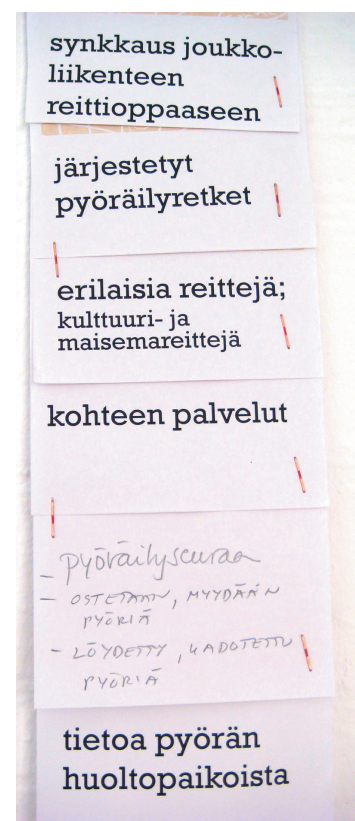 synkkaus joukko-
liikenteen
reittioppaaseen
järjestetyt
pyöräilyretket
erilaisia reittejä;
kulttuuri- ja
maisemareittejä
kohteen palvelut
- pyöräilyseuraa
- OSTETAAN, MYYDÄÄN
PYÖRIÄ
- LÖYDETTY, KADOTETTU
PYÖRIÄ
tietoa pyörän
huoltopaikoista